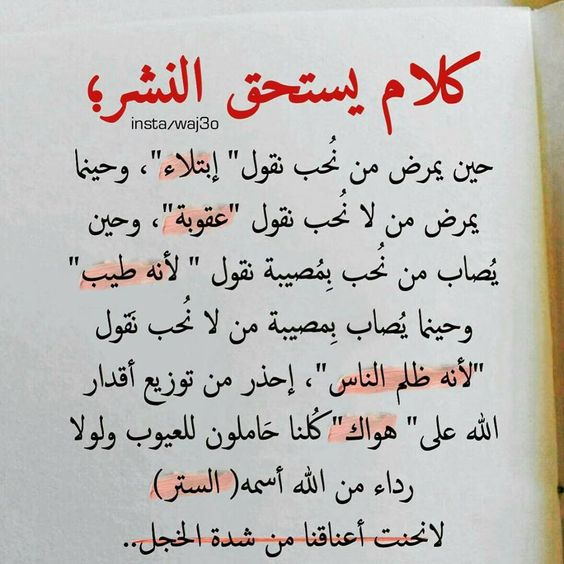 كلام يستحق النشر؛
insta/waj3o
حين يمرض من نُحب نقول" إبتلاء"، وحينما
يمرض من لا نُحب نقول "عقوبة"، وحين
يُصاب من نُحب بِمُصيبة نقول " لأنه طيب"
وحينما يُصاب بِمصيبة من لا نُحب نَقول
"لأنه ظلم الناس"، إحذر من توزيع أقدار
الله على" هواك"كُلنا حَاملون للعيوب ولولا
رداء من الله أسمه( الستر)
لانحنت أعناقنا من شدة الخجل..